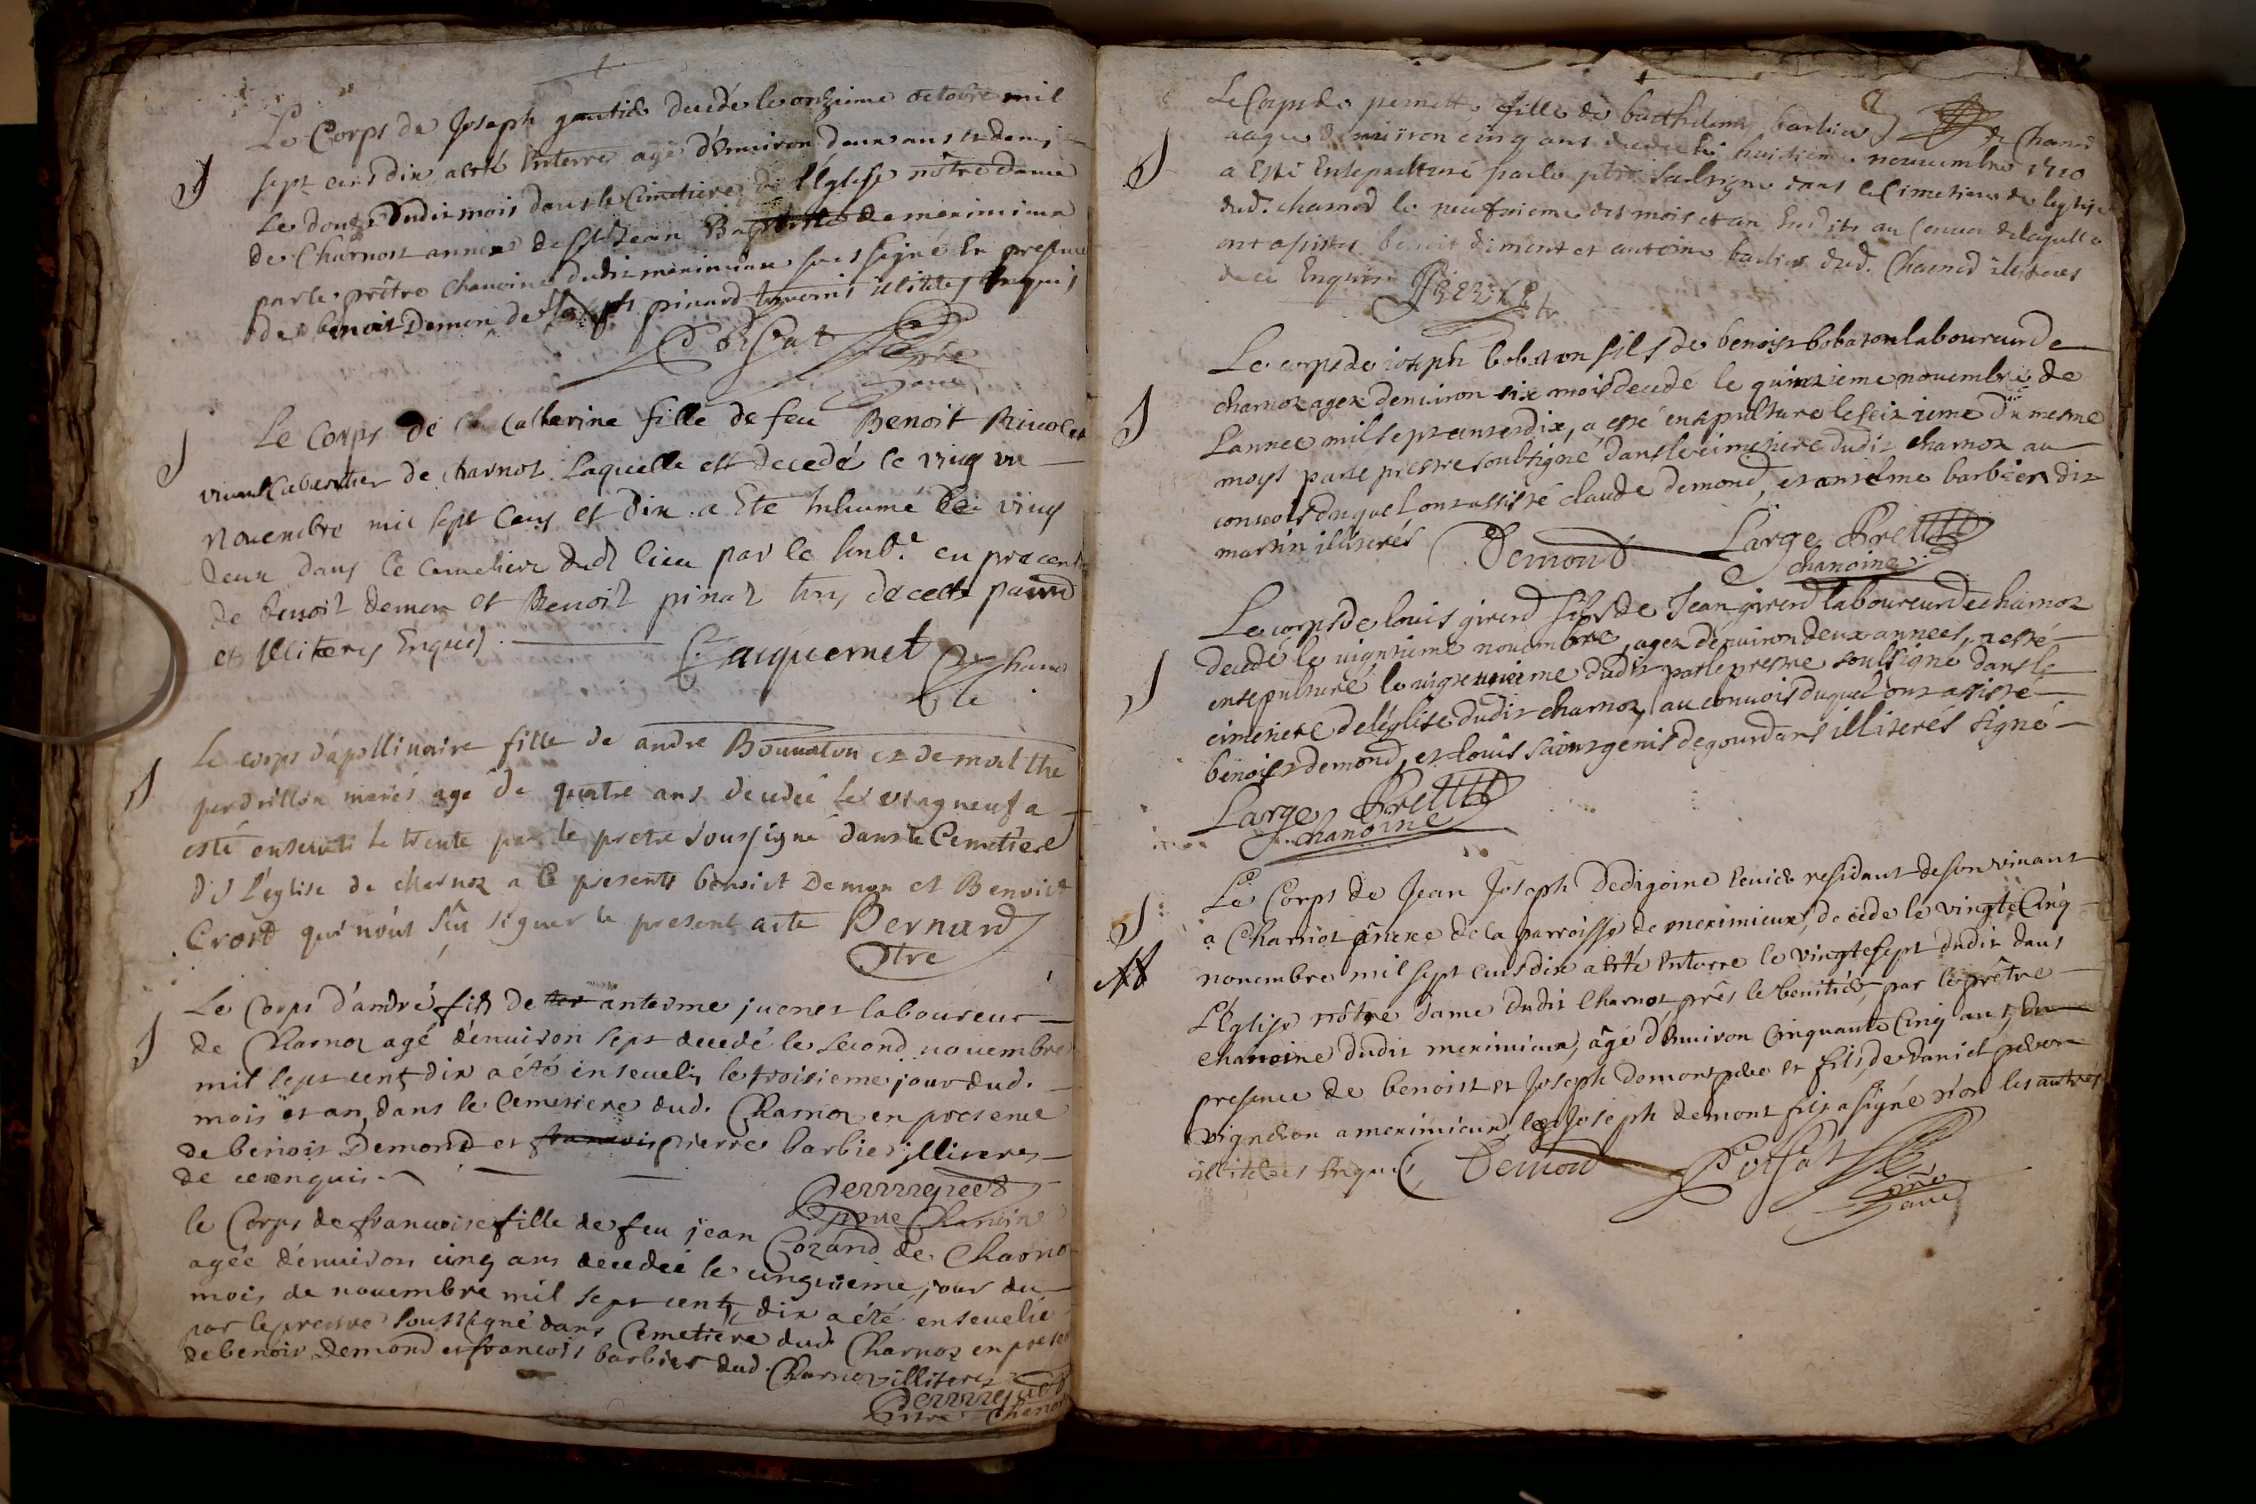 Le Corps de Joseph decedé le onzieme octobre mil
sept cens dix a eté Enterré agé d'Environ deux ans et demi
Le douze dudit mois dans le Cimetiere de l'Eglise nôtre dame
de Charnoz annexe de St Jean Baptiste de meximieux
par le prêtre chanoine dudit meximieux sous signé En presence
de benoit Demon de Joseph pinard temoins illiteres Enquis
Possat
Le Corps de Catherine fille de feu Benoit
vivant de charnoz Laquelle est decedé le ving un
Novembre mil sept Cens et dix a Ete Inhumé Le ving
deux dans le cemetiere dudt lieu par le en presence
de benoit demon et Benoit pinaz de cette
et Illiteres Enquis
Jacquemet
Le corps d'apollinaire fille de andre et de
mariés agé de quatre ans decedée le vingneuf a
esté enseveli le trente par le pretre soussigné dans le Cemetiere
de l'église de charnoz a ce presents benoist Demon et Benoict
Crost qui n'ont sçu signer le present acte Bernard
ptre
Le Corps d'andré fils de anterme juenet laboureur
de Charnoz agé d'enuiron sept decedé le second nouembre
mil sept cent dix a été enseueli le troisieme jour dud.
mois et an dans le Cemetiere dud. Charnoz en presence
de benoit Demond et pierre barbier illiteres
de ce enquis
ptre Chanoine
le Corps de francoise fille de feu jean Cozand de Charno
agée d'enuiron cinq ans decedée le cinquieme jour du
mois de nouembre mil sept cent dix a été enseuelie
par le prestre soussigné dans Cemetiere dud. Charnoz en presen
de benoit Demond et francois barbier dud. Charnoz illiteres
Le Corps de pernette fille de barthelemy barbier de Charnoz
aagée d'enuiron cinq ans decedée le huitieme nouembre 1710
a Esté Ensepulturé par le ptre soubsigné dans le Cimetiere de leglise
dud. charnoz le neufvieme des mois et an susdits au convoi de laquelle
ont assisté benoit dement et antoine barbier dud. Charnoz illiteres
de ce Enquis
Le corps de ioseph bobaton fils de benoist bobaton laboureur de
charnoz agez denuiron six mois decede le quinzieme nouembre de
Lannee mil sept cents et dix, a esté ensepulture le seizieme du mesme
moys par le prestre soubsigné dans le cimetiere dudit charnoz au
conuois duquel ont assisté claude demond, et antelme barbier dit
martin illiterés
Demond Large Pretre
chanoine
Le corps de louis girerd fils de Jean girerd laboureur de charnoz
decedé le uigntieme nouembre, agez denuiron deux annees, a esté
ensepulturé le uigt unieme dudit par le prestre soubsigné dans le
cimetiere de léglise dudit charnoz, au conuois duquel ont assisté
benoist demond, et louis degourdans illiterés signé
Large Pretre
chanoine
Le Corps de Jean Joseph Dedigoine residant de son vivant
a Charnoz annexe de la parroisse de meximieux, decede le vingte Cinq
nouembre mil sept cens dix a eté Enterre le vingte sept dudit dans
L'Eglise nôtre dame dudit Charnoz prês le benitier, par le prêtre
chanoine dudit meximieux, âgé d'Enuiron Cinquante Cinq ans, En
presence de benoist et Joseph demont pere et fils, de daniel
vigneron a meximieux, le Joseph demont fils a signé non les autres
illiteres Enquis
Demond Possat